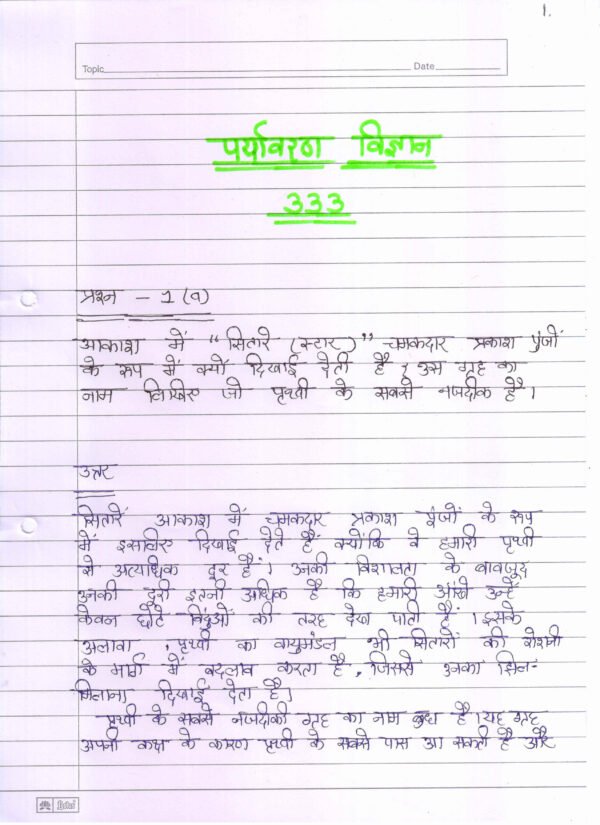 1.
Topic
Date
पर्यावरण विज्ञान
333
प्रश्न - 1 (a)
आकाश में "सितारे (स्टार)" चमकदार प्रकाश पुंजों
के रूप में क्यों दिखाई देती है ? उस ग्रह का
नाम लिखिए जो पृथ्वी के सबसे नजदीक है।
उत्तर
सितारें आकाश में चमकदार प्रकाश पुंजों के रूप
में इसलिए दिखाई देते हैं क्योंकि वे हमारी पृथ्वी
से अत्यधिक दूर हैं। उनकी विशालता के बावजूद
उनकी दूरी इतनी अधिक है कि हमारी आंखे उन्हें
केवल छोटे बिंदुओं की तरह देख पाती हैं। इसके
अलावा , पृथ्वी का वायुमंडल भी सितारों की रोशनी
के मार्ग में बदलाव करता है, जिससे उनका झिल-
मिलाना दिखाई देता है।
पृथ्वी के सबसे नजदीकी ग्रह का नाम बुध है। यह ग्रह
अपनी कक्ष के कारण पृथ्वी के सबसे पास आ सकती है और